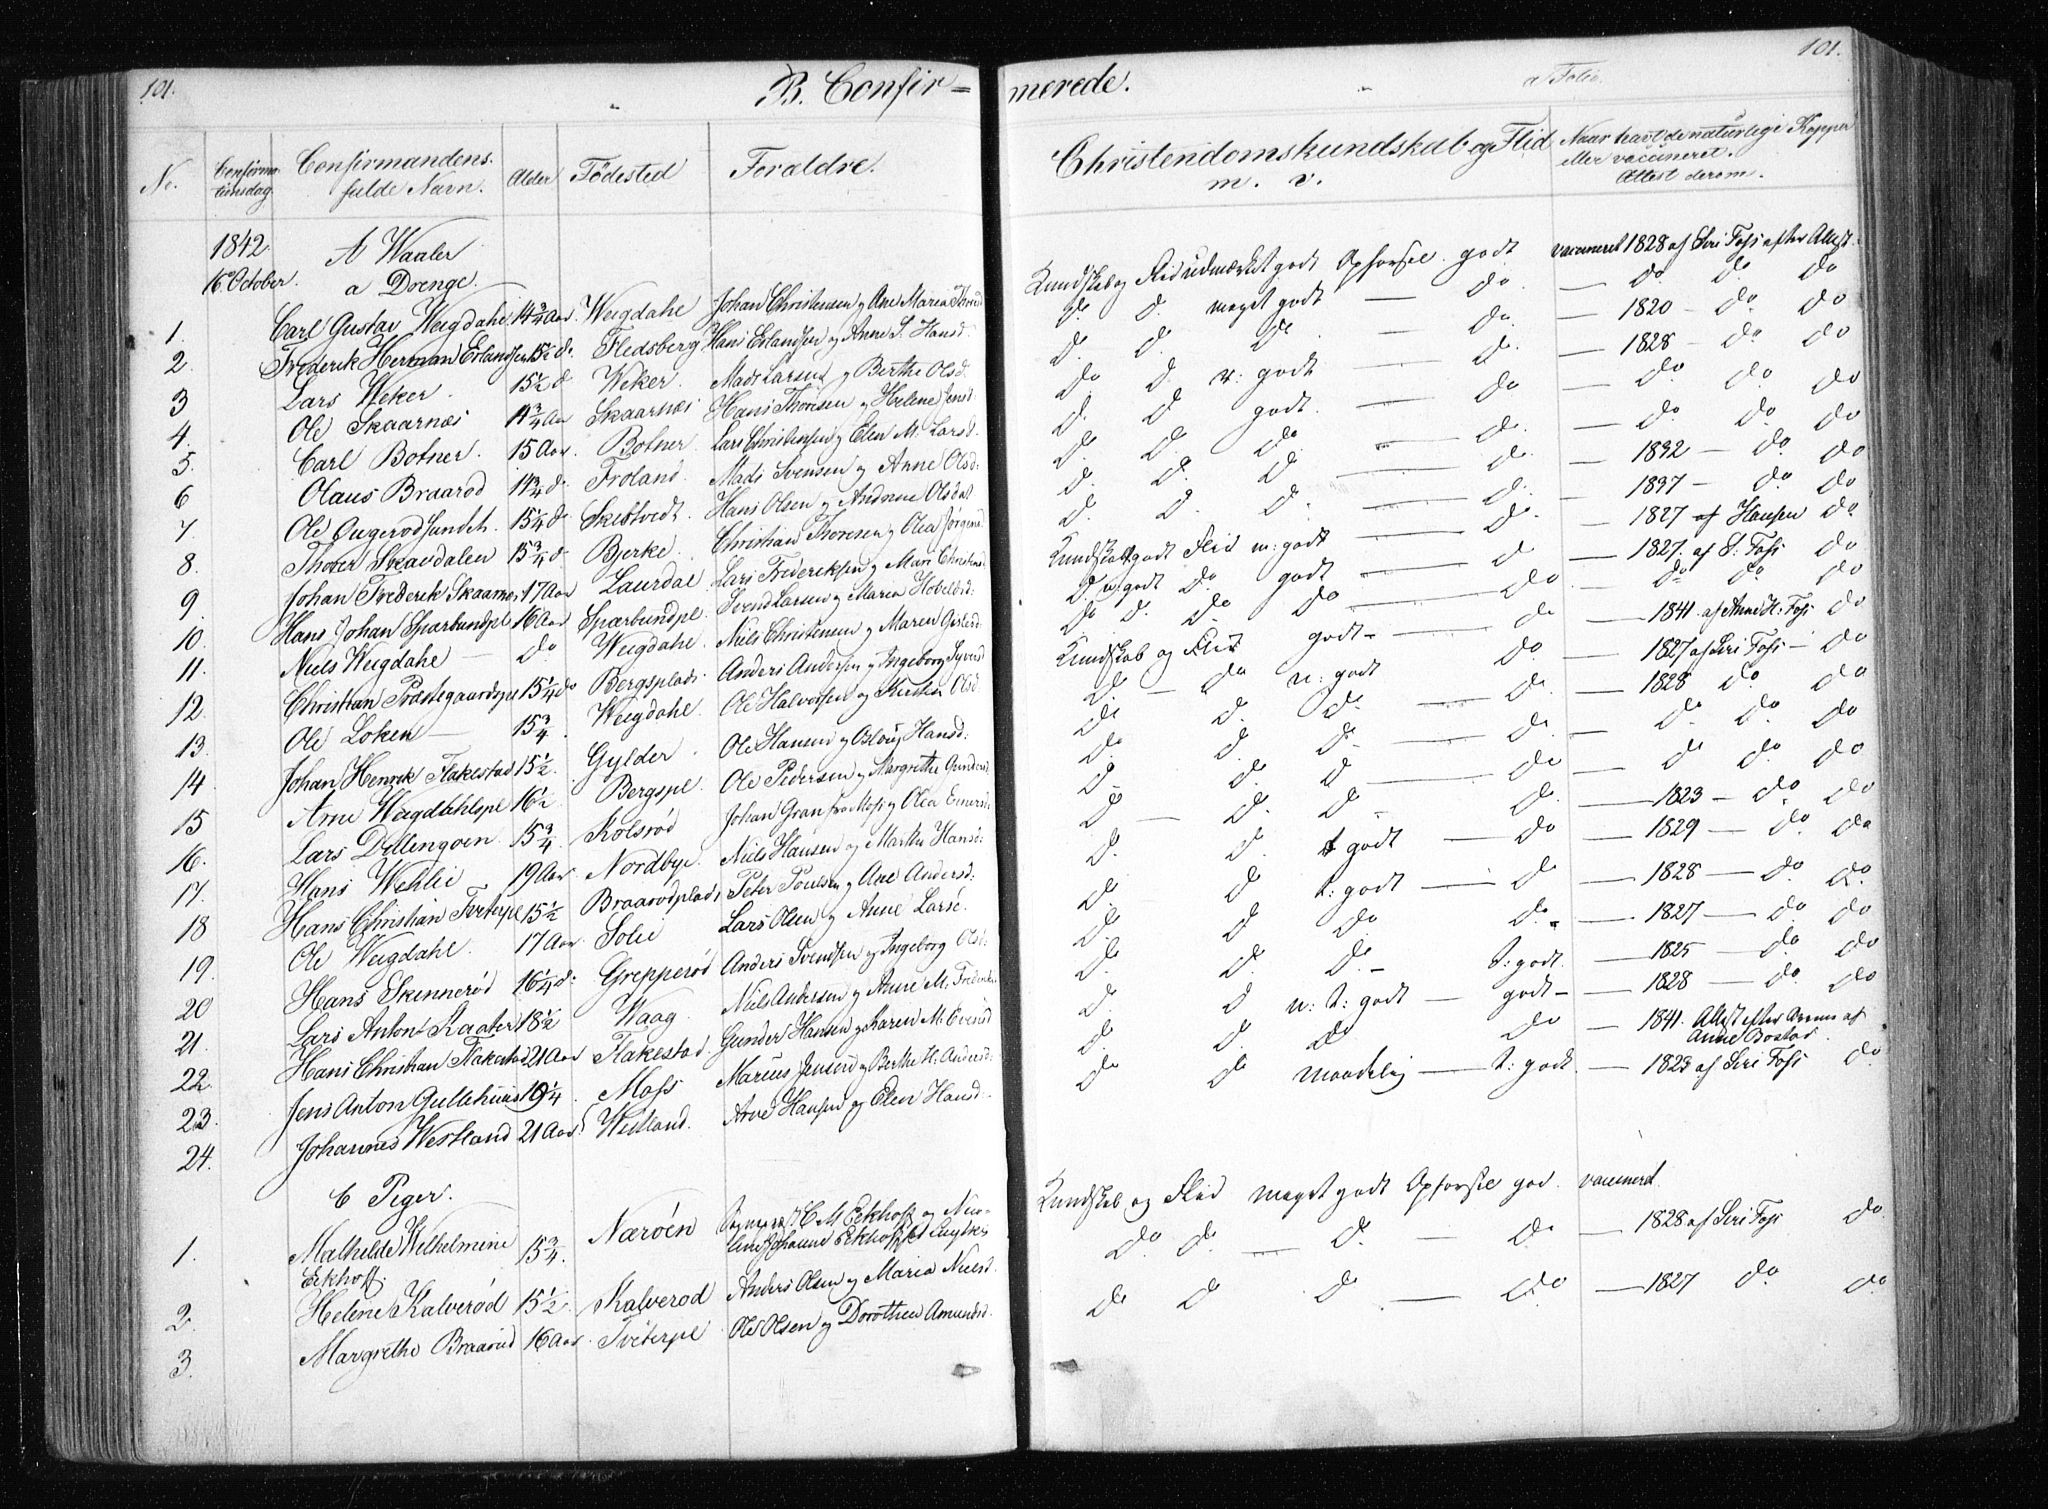 101.
B. Confir=
merede.
a Folie.
101.
No.
Confirma-
tionsdag.
Confirmandens
fulde Navn.
Alder
Födested
Foraldre.
Christendomskundskab og Flid
m. v.
Naar havt de naturlige Kopper
eller vaccineret.
Attest derom.
1842.
16 October.
A Waaler
a Drenge.
1. Carl Gustav Weigdahl 14 3/4 Aar. Weigdahl Johan Christensen og Ane Maria Kundskab og Flid udmærket godt Opførsel godt vaccineret 1828 af Siri Foss efter Attest.
2. Frederik Herman Erlandsen 15 1/2 do. Fledsberg Hans Erlandsen og Anne S. Hansd. do. do. meget godt — do. — do do do
3 Lars Weker. 15 1/2 do Weker. Mads Larsen og Berthe Olsd. do. do. do. — do. — 1820 — do. do
4. Ole Skaarnæs 14 3/4 Aar Skaarnæs Hans Thoresen og Helene Jensd. do do. m: godt — do. — 1828 — do do
5. Carl Botner. 15 Aar. Botner. Lars Christensen og Elen M. Larsd. do. do godt. — do — do. do do
6 Olaus Braarod 14 3/4 do. Froland. Mads Svensen og Anne Olsd: do. do. do. — do. — do. do. do
7. Ole Augerodsundet. 15 1/4 do Skibtvedt. Hans Olsen og Andrine Olsdat do. do. do — do. — 1832 — do. do
8. Thoer Skavdalen 15 3/4 do. Bjerke. Christian Thoresen og Olea Jørgensd do. do. do. — do. — 1837 — do. do
9. Johan Frederik Skaarnæs 17 Aar Laurdal Lars Frederiksen og Mari Christensd Kundskab godt Flid m: godt — do — 1827 af Hansen do
10. Hans Johan Sparbundpl. 16 Aar Sparbundpl. Svend Larsen og Maria do m: godt do. godt — do — 1827. af S: Foss do
11. Niels Weigdahl — do Weigdahl. Niels Christensen og Maren do do. do. do — do. — do do. do
12 Christian Præstegaardspl 15 1/4 do Bergsplads. Anders Andersen og Ingeborg Kundskab og Flid godt — do — 1841 af Anne H. Foss do
13. Ole Loken — 15 3/4. Weigdahl. Ole Halvorsen og Kirstin Olsd. do. — do m: godt do. — 1827 af Siri Foss — do
14 Johan Henrik Flakestad 15 1/2. Gylder. Ole Hansen og Aslaug Hansd: do do. do. — do. — 1828 do. do
15 Arne Weigdahlspl 16 1/2 Bergspl. Ole Pedersen og Margrethe do. do. do. — do. — do. do. do
16. Lars Dillengoen. 15 3/4. Kolsrød Johan Gran fra Moss og Olea do. do. do — do — do do. do
17. Hans Wehlie 19 Aar. Nordbye. Niels Hansen og Marthe Hansd: do. — do. do. — do. — 1823 — do. do
18 Hans Christian Tveterpl 15 1/2 Braarodplads Peter Poulsen og Ane Andersd: do. do. t godt — do — 1829 — do. do
19. Ole Weigdahl. 17 Aar. Solie Lars Olsen og Anne Larsd. do. do t: godt — do — 1828 — do. do.
20 Hans Skinnerød 16 1/4 do. Grepperød Anders Svendsen og Ingeborg Olsd: do. do do. do. — 1827 — do do
21. Lars Anton Kaater 18 1/2 Waag. Niels Andersen og Anne M. do. do. do. — t: godt. — 1825 — do. do
22. Hans Christian Flakestad 21 Aar Flakestad. Gunder Hansen og Karen M. do. do m: t: godt — godt — 1828 — do. do
23. Jens Anton Gullehuus 19 1/4. Moss Marius Jensen og Berthe H. Andersd: do. do. do do — 1841. Attest efter af
Anne Bostad.
24. Johannes Westland 21 Aar Westland. Arne Hansen og Elen Hansd. do do maadelig — t: godt. — 1823 af Siri Foss do
C Piger.
1. Mathilde Wilhelmine
Eckhoff. 15 3/4. Nærøen Sognepræst C M Eckhoff og
Johanne Eckhoff Kundskab og Flid meget godt Opførsel god. vaccineret
2. Helene Kalverød 15 1/2 Kalverod Anders Olsen og Maria Nielsd. do. do. — do. — do. — 1828 af Siri Foss do.
3. Margrethe Braarud 16 Aar. Tveterpl Ole Olsen og Dorothea Amundsd. do do do — do. — 1827 do. do